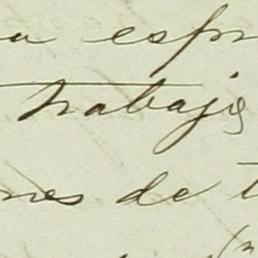 a esp
trabajo
nes de t